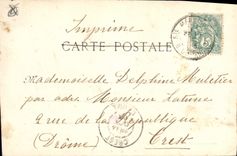 Imprimé
CARTE POSTALE
Mademoiselle Delphine Muletier
par adr. Monsieur
2 rue de la République
(Drôme) Crest